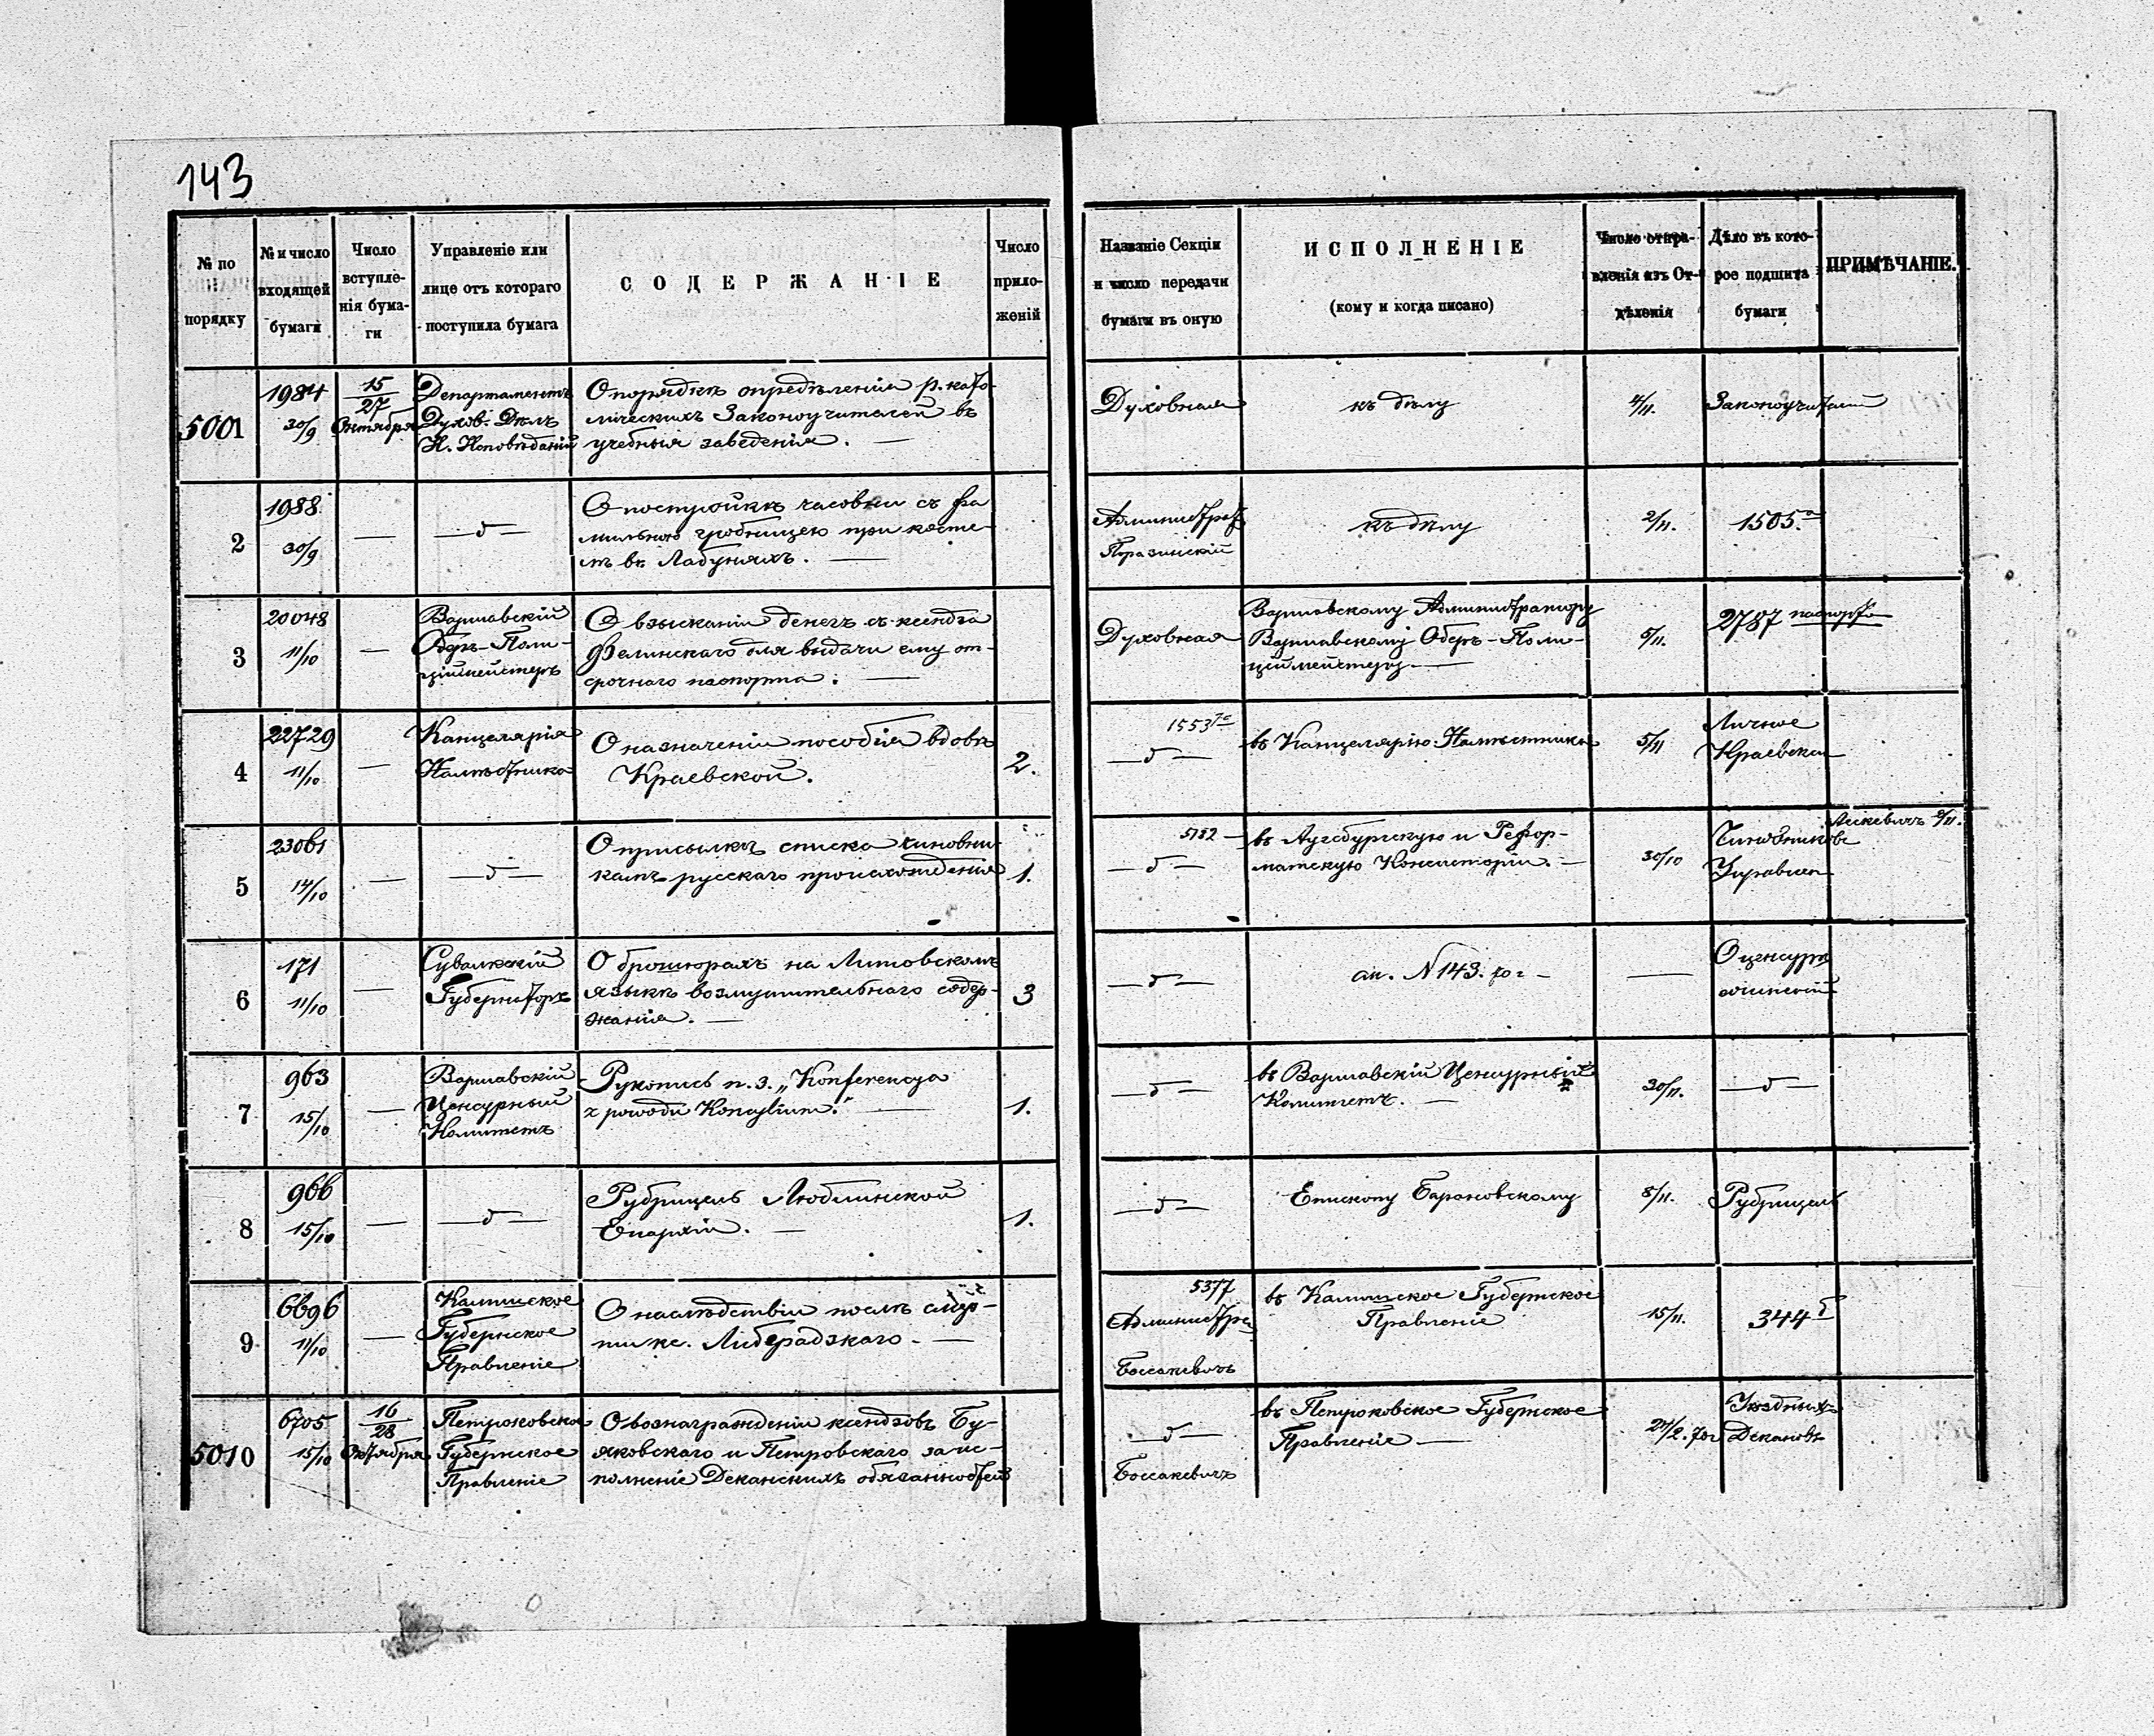 143
№ по порядку
№ и число входящей бумаги
Число вступленія бумаги
Управленіе или лице отъ котораго поступила бумага
СОДЕРЖАНІЕ
Число приложеній
Названіе Секціи и число передачи бумаги въ оную
ИСПОЛНЕНІЕ
(кому и когда писано)
Число отправленія изъ Отдѣленія
Дѣло въ которое подшита бумаги
ПРИМѢЧАНІЕ.
5001
1984
30/9
15/27
Октября
Департаментъ
Духов. Дѣлъ
И. Исповѣданій
О порядкѣ опредѣленія р. като-
лическихъ Законоучителей въ
учебныя заведенія. —
Духовная
къ дѣлу
4/11.
Законоучителей
2
1988
30/9
—
— д —
О постройкѣ часовни съ фа
мильною гробницею при косте-
лѣ въ Лабуняхъ. —
Администрат
къ дѣлу
2/11.
1505. а
3
20048
11/10
—
Варшавскій
Оберъ-Поли-
ціймейстеръ
О взысканіи денегъ съ ксендза
Фелинскаго для выдачи ему от-
срочнаго паспорта. —
Духовная
Варшавскому Администратору
Варшавскому Оберъ-Поли-
ціймейстеру. —
5/11.
2787 паспорта
4
22729
11/10
—
Канцелярія
Намѣстника
О назначеніи пособія вдовѣ
Краевской.
2.
1553
— д —
въ Канцелярію Намѣстника
5/11
Личное
Краевской
5
23061
14/10
—
— д —
О присылкѣ списка чиновни-
камъ русскаго происхожденія
1.
5182 —
— д —
въ Аугсбургскую и Рефор-
матскую Консисторіи. —
30/10
Чиновниковъ
Управлен
6
171
11/10
—
Сувалкскій
Губернаторъ
О брошюрахъ на Литовскомъ
языкѣ возмутительнаго содер-
жанія. —
3
— д —
N 143. 70 г —
—
О цензурѣ
сочиненій
7
963
15/10
—
Варшавскій
Ценсурный
Комитетъ
Рукопись п. з. „Konferencya
z powodu Koncylium." —
1.
— д —
въ Варшавскій Ценсурный
Комитетъ. —
30/11.
— д —
8
966
15/10
—
— д —
Рубрицель Люблинской
Епархіи. —
1.
— д —
Епископу Барановскому
8/11.
Рубрицели
9
6696
11/10
—
Калишское
Губернское
Правленіе
О наслѣдствіи послѣ смер-
ти кс. Либерадзкаго. —
5377
Администра
въ Калишское Губернское
Правленіе
15/11.
344 б
5010
6705
15/10
16/28
Октября
Петроковское
Губернское
Правленіе
О вознагражденіи ксендзовъ Бу-
яковскаго и Петровскаго за ис-
полненіе Деканскихъ обязанностей
— д —
въ Петроковское Губернское
Правленіе —
24/2. 70 г
Уѣздныхъ
Декановъ